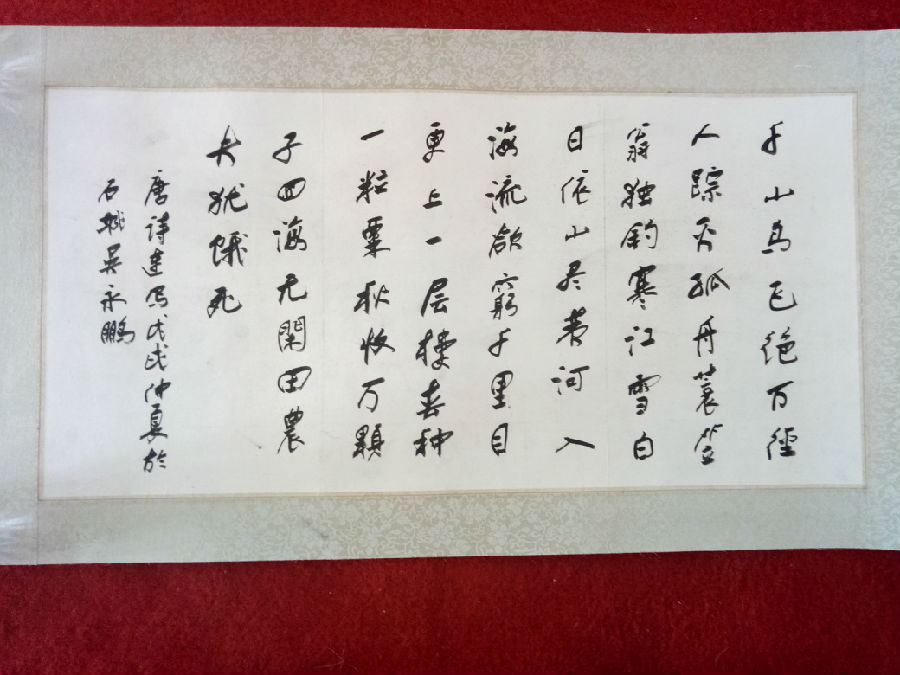 千山鸟飞绝万徑
人踪灭孤舟蓑笠
翁独釣寒江雪白
日依山尽黄河入
海流欲窮千里目
更上一层楼春种
一粒粟秋收万顆
子四海无閑田農
夫犹餓死
唐诗写戊戌仲夏於
石城吴永鹏